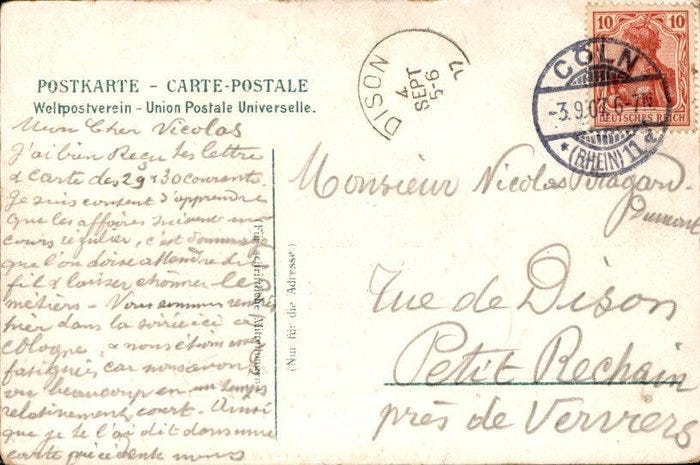 POSTKARTE – CARTE-POSTALE
Weltpostverein – Union Postale Universelle.
DISON
4
SEPT
5-6
10 10
DEUTSCHES REICH
CÖLN
-3.9.07. 6-7N
* (RHEIN) 11
Mon Cher Nicolas
J'ai bien Reçu tes lettre
& carte des 29 & 30 courants.
Je suis content d'apprendre
que les affaires suivent un
cours régulier, c'est dommage
que l'on doive attendre du
fil & laisser chômer les
métiers – Nous sommes
hier dans la soirée ici à
Cologne, & nous étions
fatigués car nous avons
vu beaucoup en un temps
relativement court. Ainsi
que je te l'ai dit dans une
carte précédente nous
(Für schriftliche Mitteilungen)
(Nur für die Adresse)
Monsieur Nicolas
Rue de Dison
Petit Rechain
près de Verviers